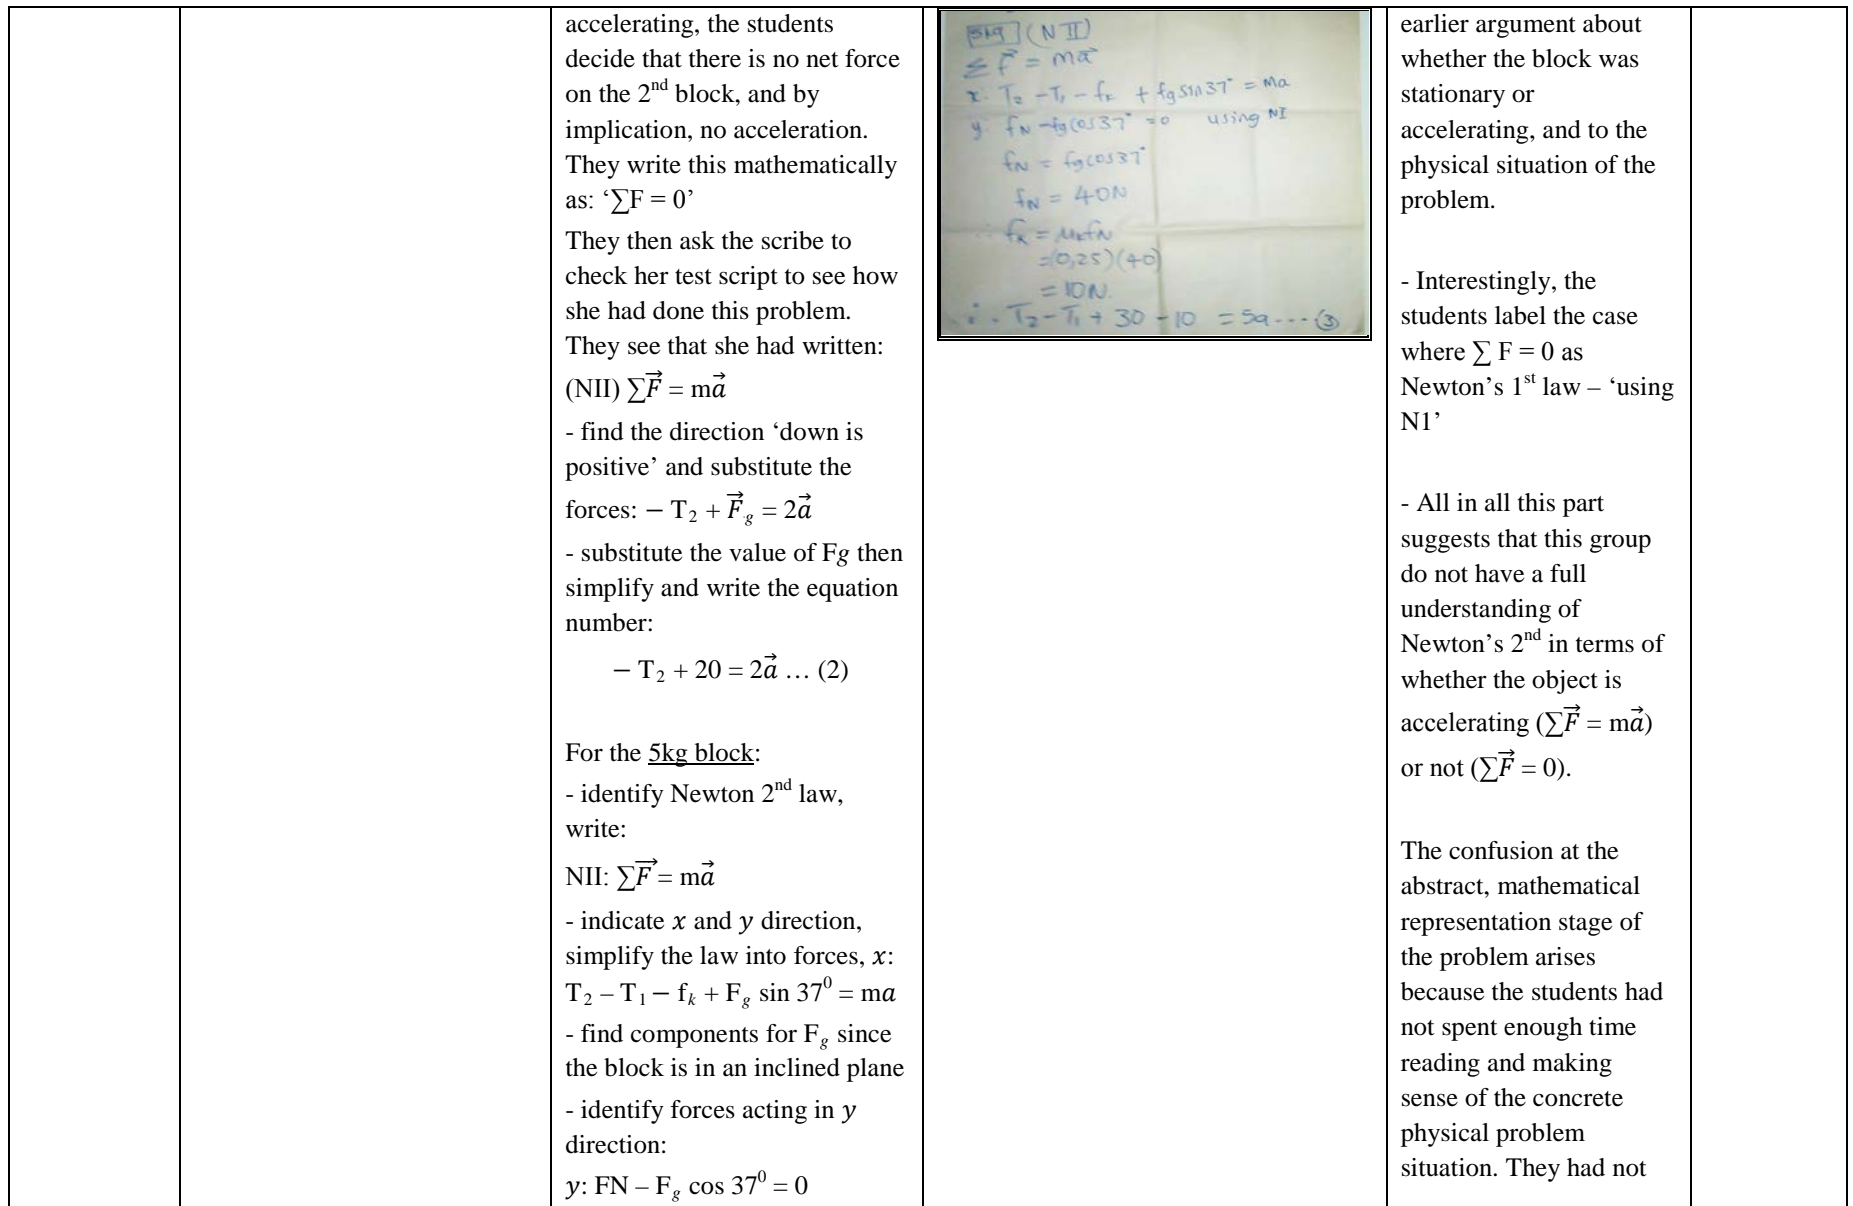 accelerating, the students
decide that there is no net force
on the 2nd block, and by
implication, no acceleration.
They write this mathematically
as: ‘∑F = 0’
They then ask the scribe to
check her test script to see how
she had done this problem.
They see that she had written:
(NII) ∑F⃗ = ma⃗
- find the direction ‘down is
positive’ and substitute the
forces: − T₂ + F⃗g = 2a⃗
- substitute the value of Fg then
simplify and write the equation
number:
− T₂ + 20 = 2a⃗ … (2)
For the 5kg block:
- identify Newton 2nd law,
write:
NII: ∑F⃗ = ma⃗
- indicate x and y direction,
simplify the law into forces, x:
T₂ – T₁ − fₖ + Fg sin 37⁰ = ma
- find components for Fg since
the block is in an inclined plane
- identify forces acting in y
direction:
y: FN – Fg cos 37⁰ = 0
5kg (N II)
∑F⃗ = ma⃗
x: T₂ - T₁ - fₖ + fg sin37° = ma
y: fN - fg cos37° = 0 using NI
fN = fg cos37°
fN = 40N
∴ fₖ = μₖfN
= (0,25)(40)
= 10N.
∴ T₂ - T₁ + 30 - 10 = 5a ---- (3)
earlier argument about
whether the block was
stationary or
accelerating, and to the
physical situation of the
problem.
- Interestingly, the
students label the case
where ∑ F = 0 as
Newton’s 1st law – ‘using
N1’
- All in all this part
suggests that this group
do not have a full
understanding of
Newton’s 2nd in terms of
whether the object is
accelerating (∑F⃗ = ma⃗)
or not (∑F⃗ = 0).
The confusion at the
abstract, mathematical
representation stage of
the problem arises
because the students had
not spent enough time
reading and making
sense of the concrete
physical problem
situation. They had not